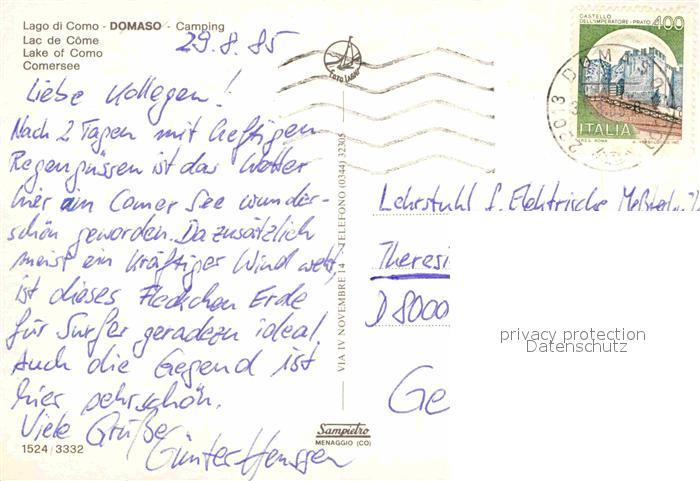 Lago di Como - DOMASO - Camping
Lac de Côme
Lake of Como
Comersee
29.8.85
Liebe Kollegen!
Nach 2 Tagen mit heftigen
Regengüssen ist das Wetter
hier am Comer See wunder-
schön geworden. Da zusätzlich
meist ein kräftiger Wind weht,
ist dieses Fleckchen Erde
für Surfer geradezu ideal.
Auch die Gegend ist
hier sehr schön.
Viele Grüße
Günter Henssen
1524/3332
VIA IV NOVEMBRE 14 - TELEFONO (0344) 32305
FOTO LUIGI
Sampietro
MENAGGIO (CO)
CASTELLO
DELL'IMPERATORE - PRATO
400
ITALIA
22013 DOMASO
Lehrstuhl f. Elektrische
Theresi
D 8000
Ge
privacy protection
Datenschutz